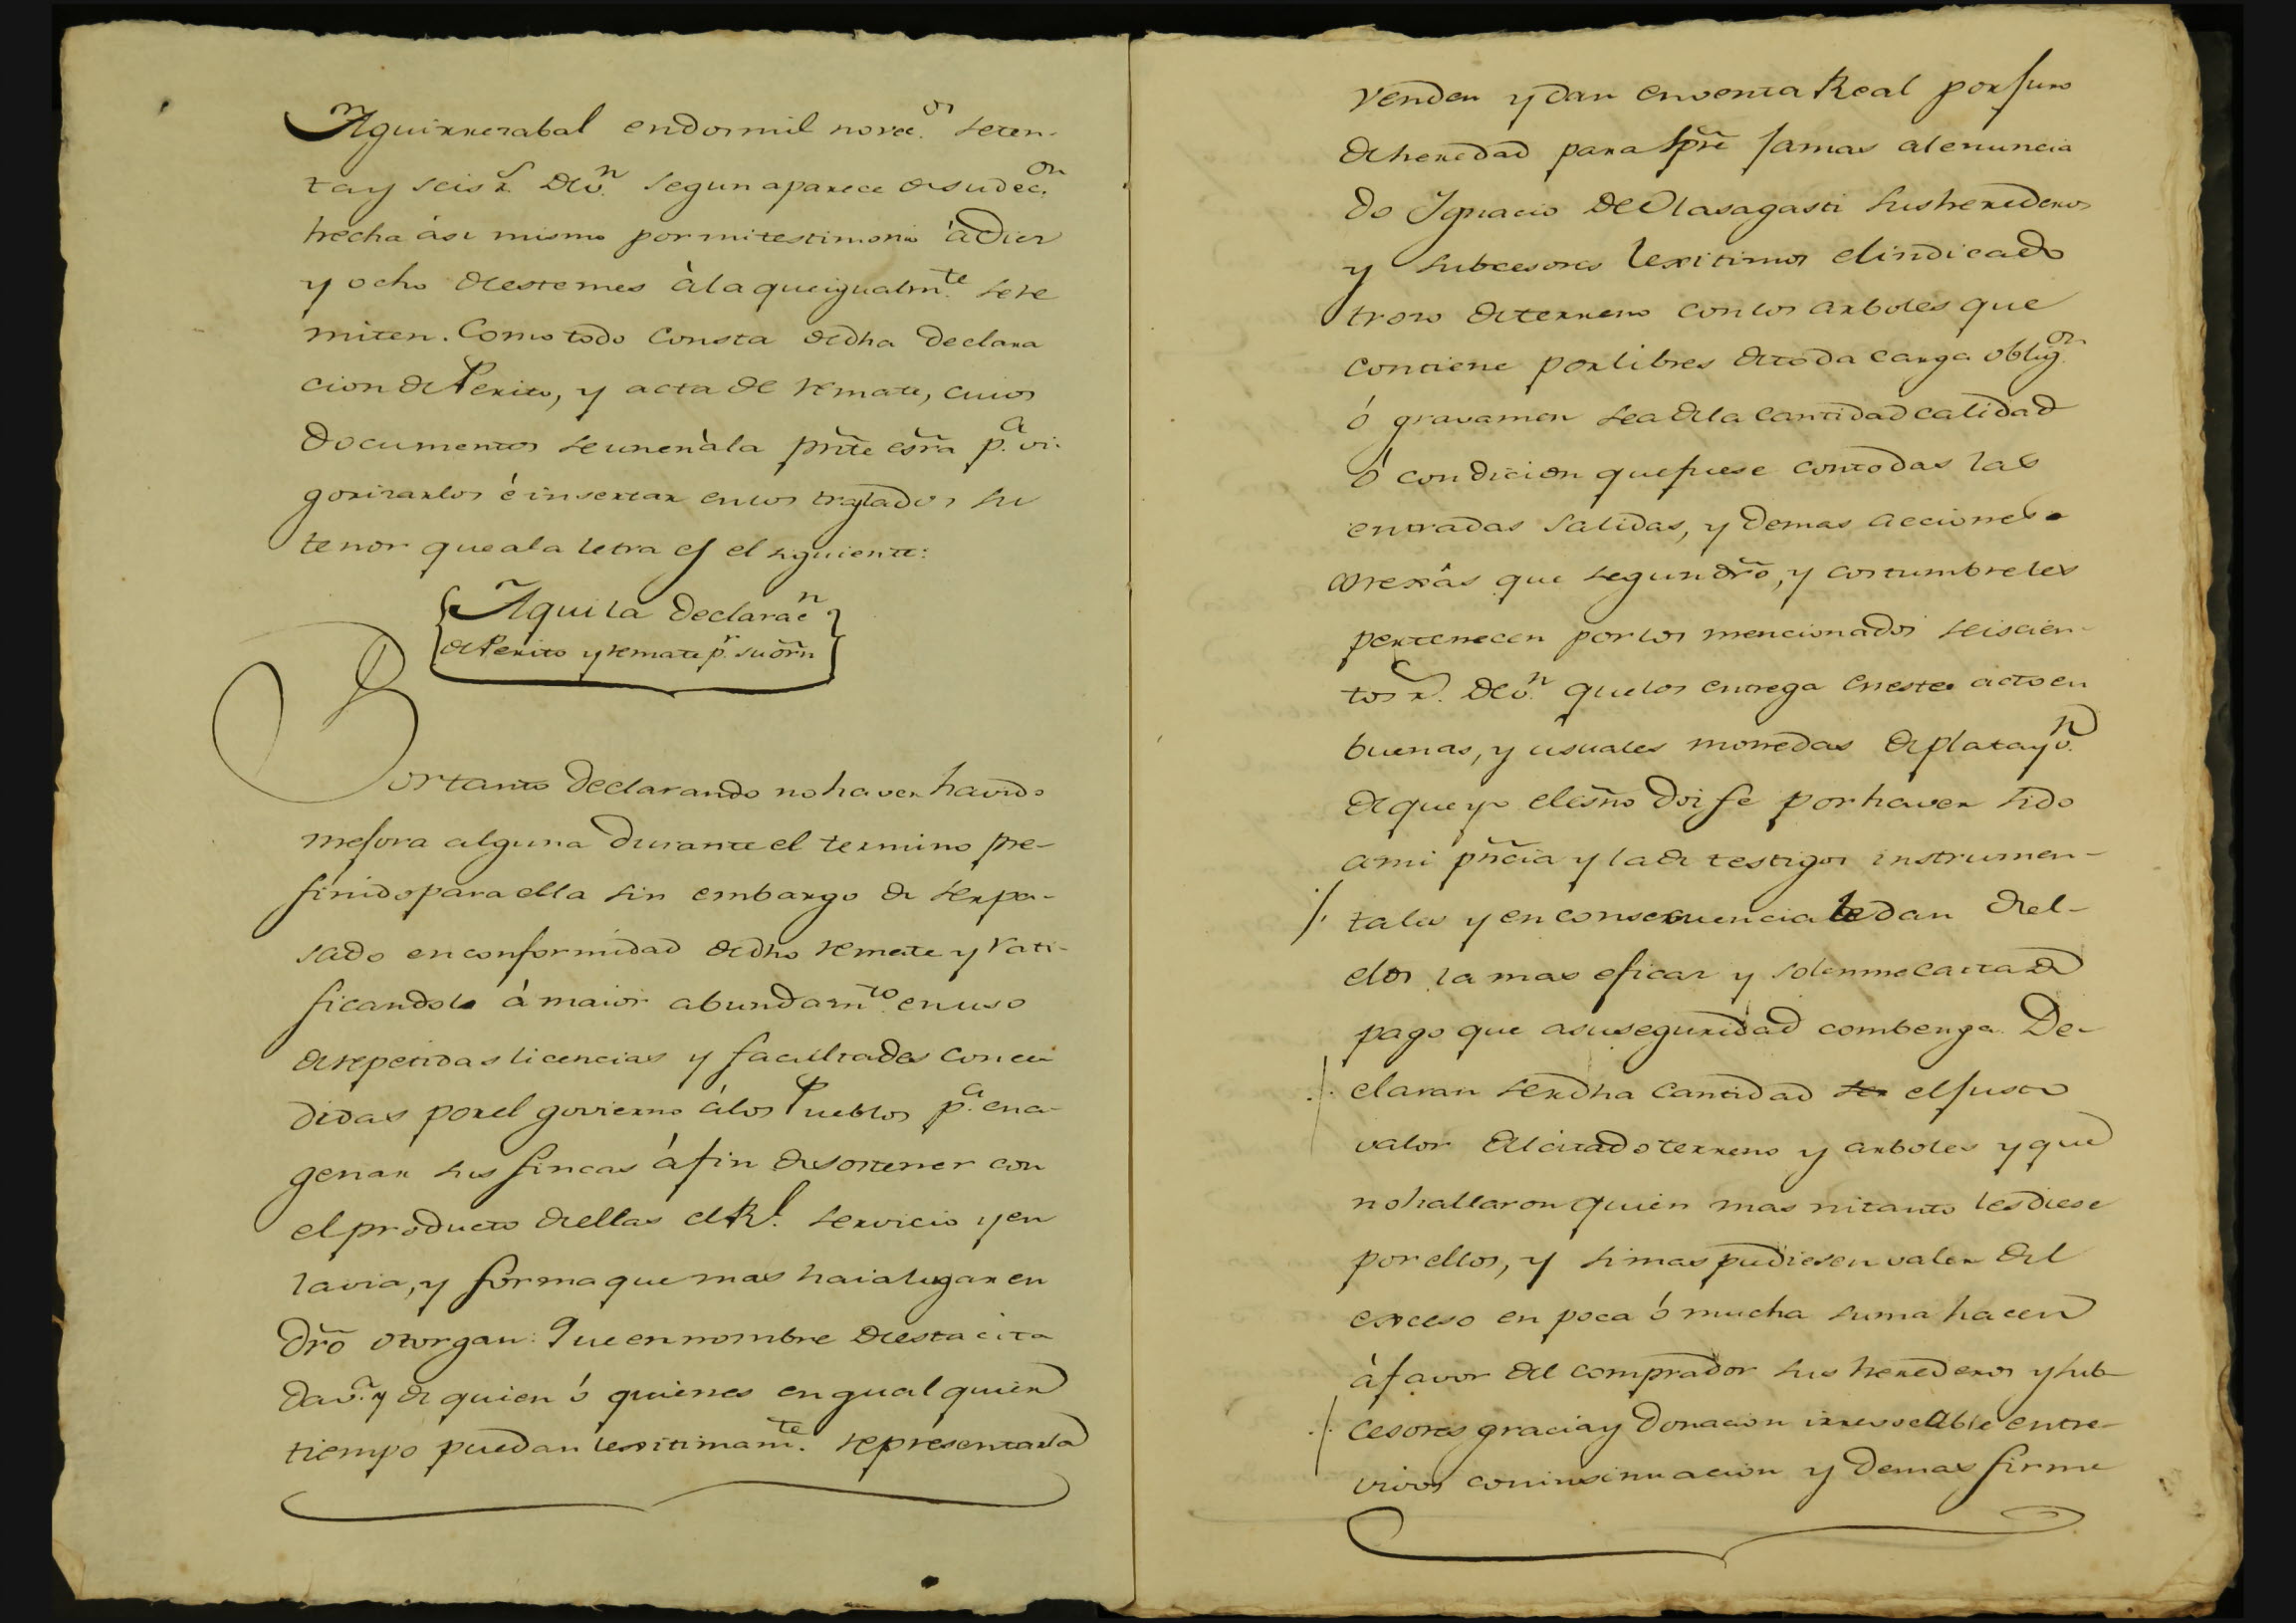 Aguirrezabal en dos mil novec.os seten-
ta y seis r.s de v.n segun aparece de su dec.on
hecha ási mismo por mi testimonio á diez
y ocho de este mes à la que igualm.te se re
miten. Como todo consta de dha declara
cion de Perito, y acta de remate, cuios
documentos se unen à la prñte esc̃ra p.a vi-
gorizarlos é insertar en los traslados su
tenor que a la letra es el siguiente:
Aqui la declarac.n
de Perito y remate p.r su orñ
Por tanto declarando no haver havido
mejora alguna durante el termino pre-
finido para ella sin embargo de ser pa-
sado en conformidad de dho remate y rati-
ficandole à maior abundam.to en uso
de repetidas licencias y facultades conce
didas por el govierno álos Pueblos p.a ena-
genar sus fincas áfin de sostener con
el producto de ellas el R.l servicio y en
la via, y forma que mas haia lugar en
dr̃o otorgan: Que en nombre de esta cita
da v.a y de quien ó quienes en qualquier
tiempo puedan lexitimam.te representarla
venden y dan en venta Real por juro
de heredad para sp̃re jamas al enuncia
do Ignacio de Olasagasti sus herederos
y subcesores lexitimos el indicado
trozo de terreno con los arboles que
contiene por libres de toda carga oblig.on
ó gravamen sea de la cantidad calidad
ó condicion que fuese con todas las
entradas salidas, y demas acciones
anexâs que segun dr̃o, y costumbre les
pertenecen por los mencionados seiscien-
tos r.s de v.n que los entrega en este acto en
buenas, y usuales monedas de plata y v.n
de que yo el esñо doi fe por haver sido
a mi pñcia y la de testigos instrumen-
tales y en consecuencia le dan de el-
elos la mas eficaz y solemne carta de
pago que a su seguridad combenga. De-
claran ser dha cantidad el justo
valor del citado terreno y arboles y que
no hallaron quien mas ni tanto les diese
por ellos, y si mas pudiesen valer del
exceso en poca ó mucha suma hacen
à favor del comprador sus herederos y sub-
cesores gracia y donacion irrevocable entre
vivos con insinuacion y demas firme